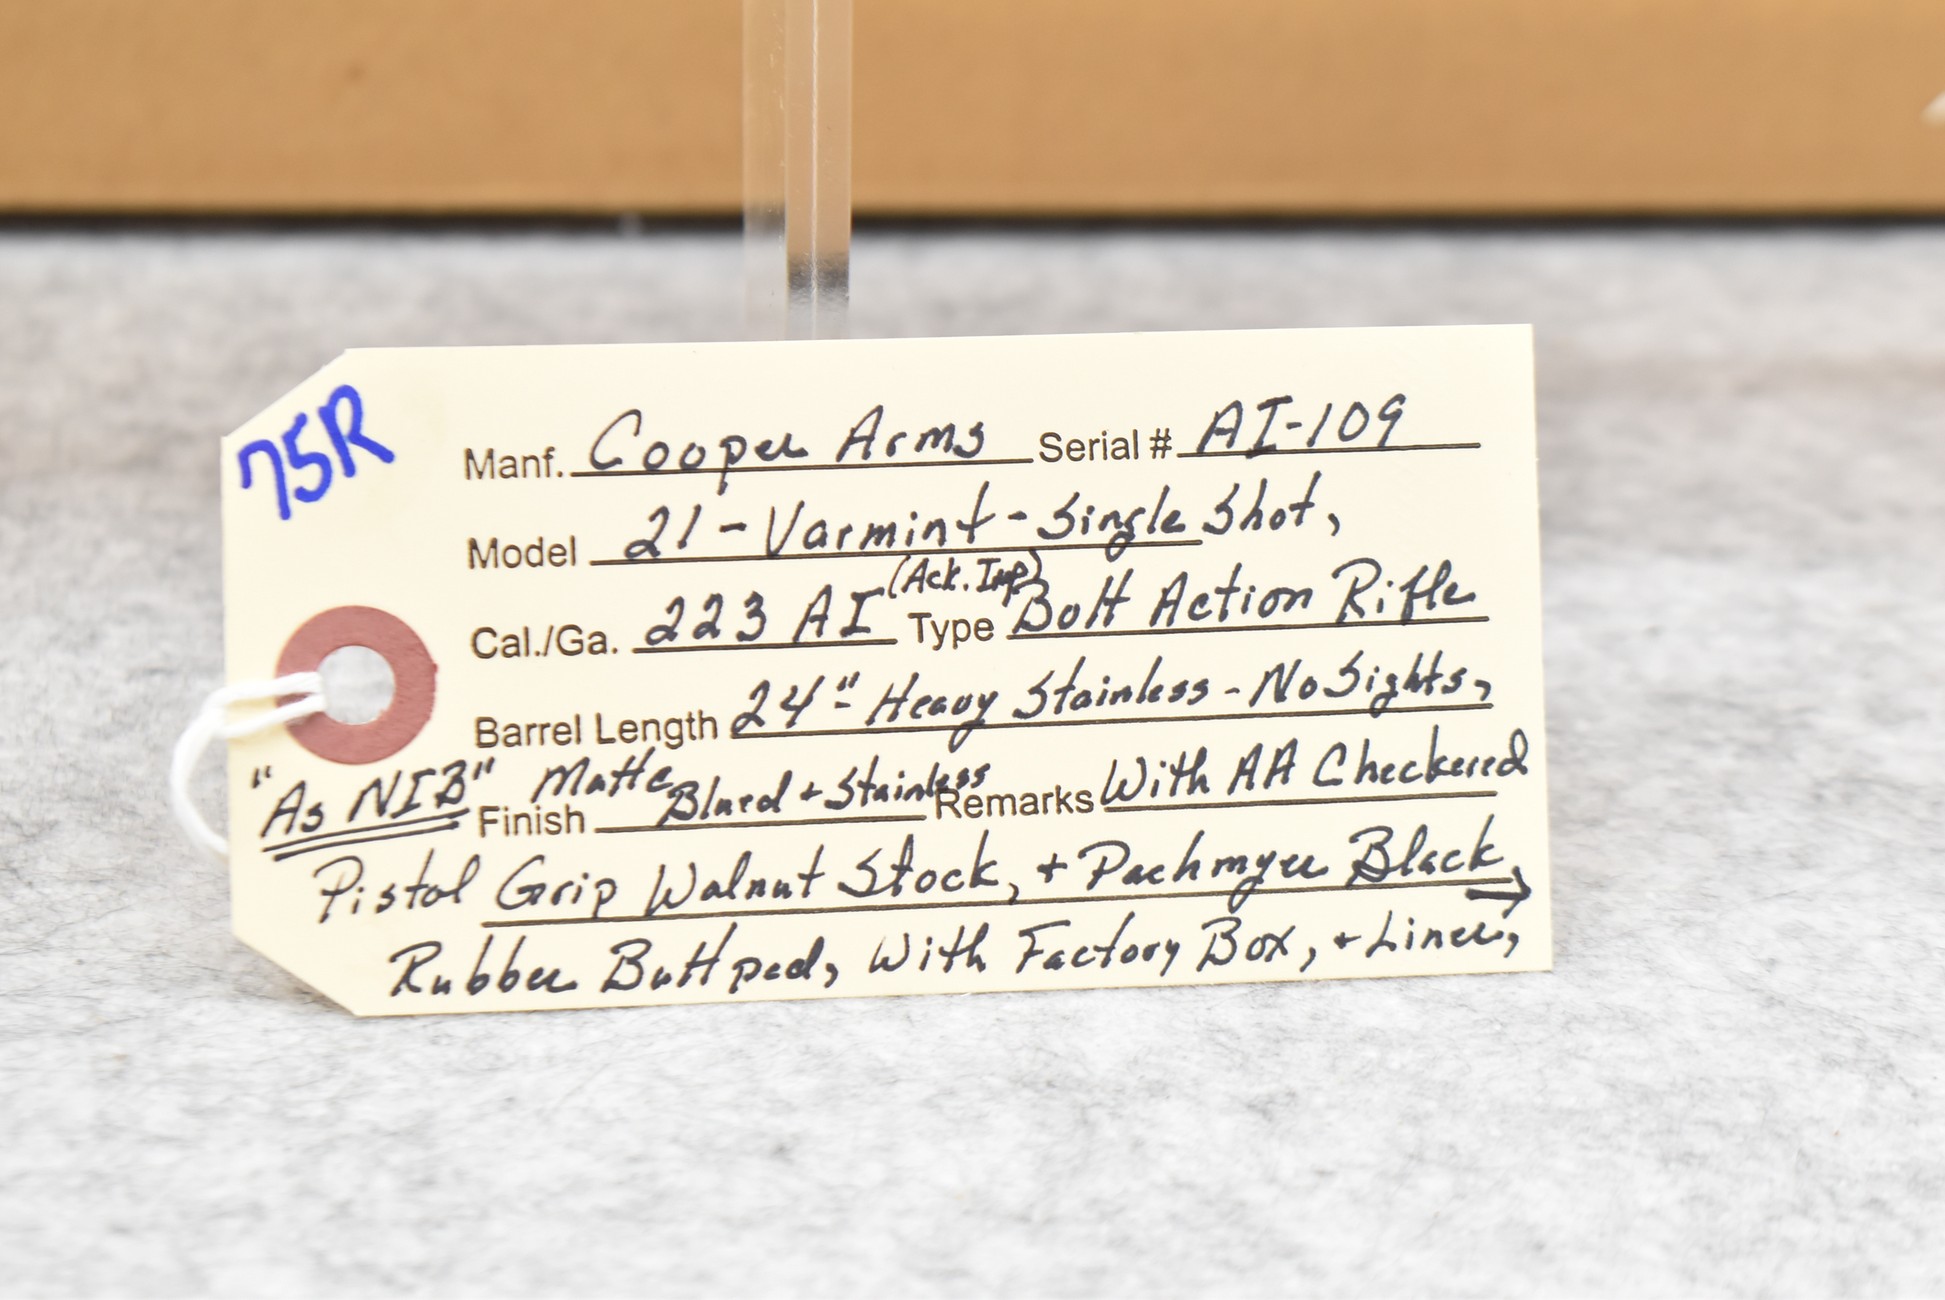 75R
Manf. Cooper Arms Serial # AI-109
Model 21 - Varmint - Single Shot,
(Ack. Imp)
Cal./Ga. 223 AI Type Bolt Action Rifle
Barrel Length 24" Heavy Stainless - No Sights,
"As NIB" Matte Blued + Stainless
Finish Remarks With AA Checkered
Pistol Grip Walnut Stock, + Pachmyer Black
Rubber Buttpad, With Factory Box, + Liner,
→